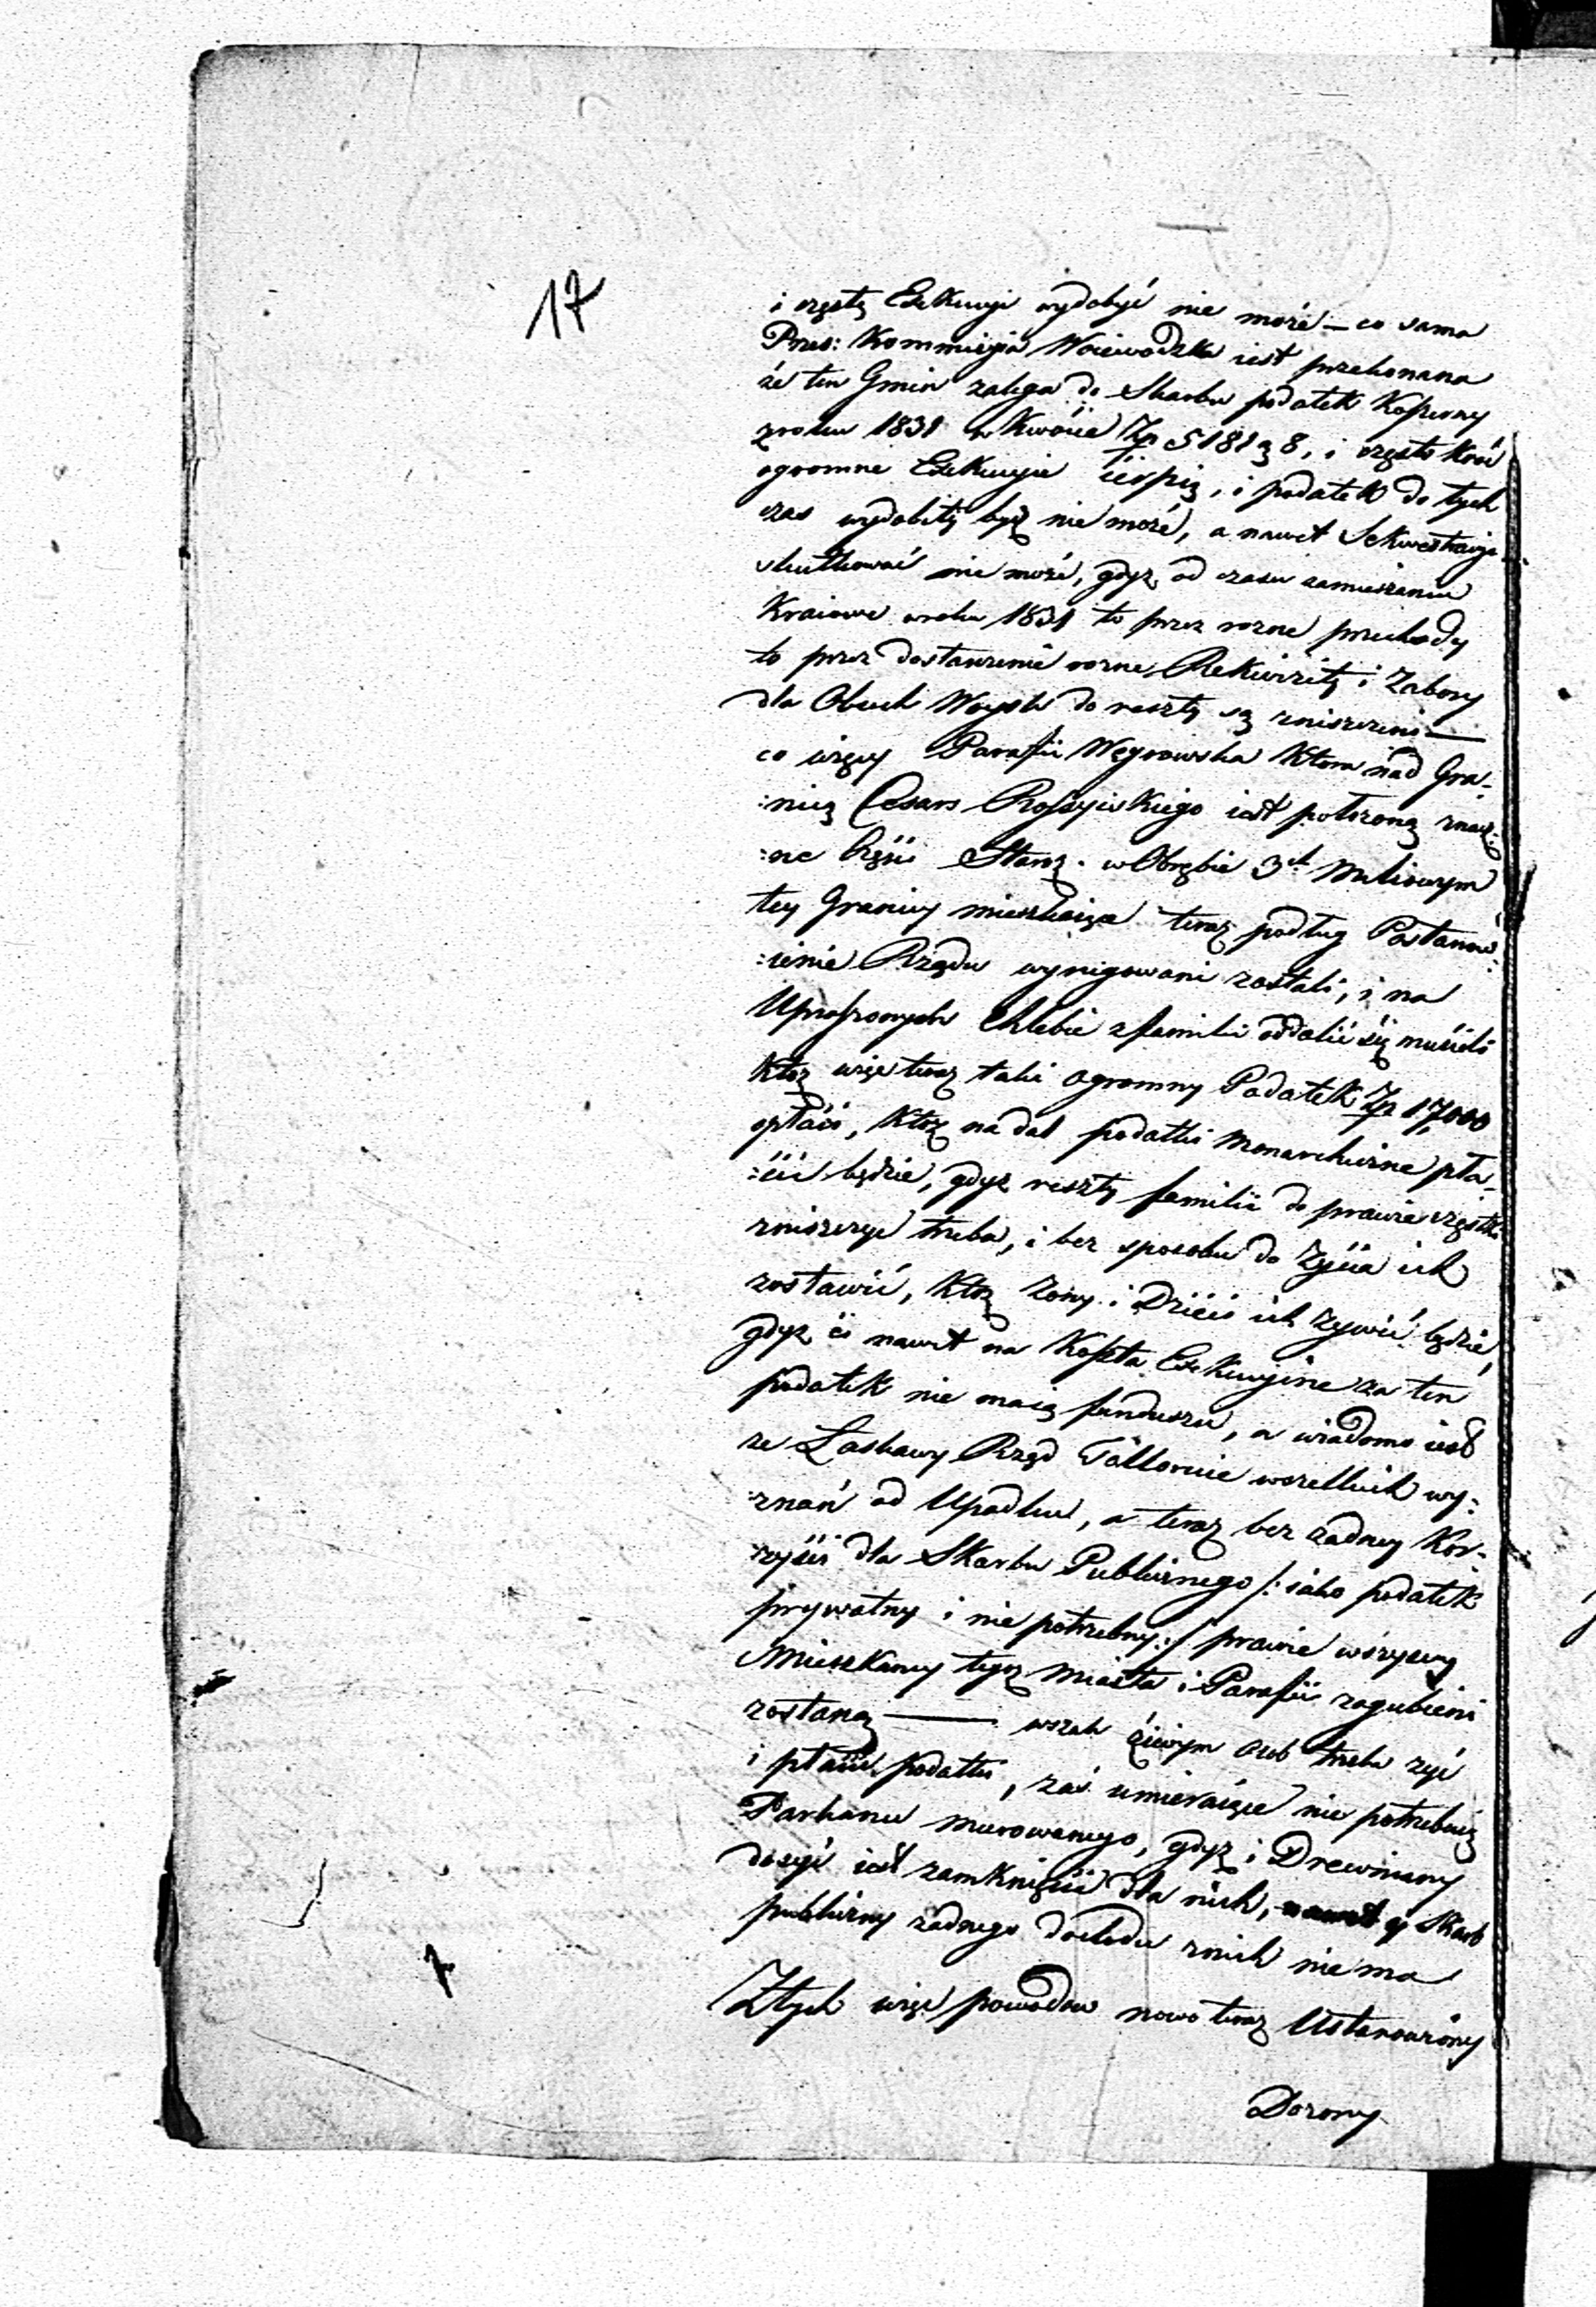 17
i częstą Exekucyi wydobyć nie može — co sama
Prze: Kommissyia Woiewodzka iest przekonana
że ten Gmin zalega do Skarbu podatek Koszerny
zroku 1831 w kwoċie Zp 5181 g 8, i często kroć
ogromne Exekucyie ċierpią, i podatek do tych
czas wydobity być nie može, a nawet Sekwestracyi
skutkować nie može, gdyz od czasu zamieszaniu
Kraiowe wroku 1831 to przez rozne przechody
to przez dostawienie rozne Rekwizity i Zabory
dla Obuch Woysk do reszty są zniszczeni —
co więcy Parafii Węgrowska Ktora nad Gra-
:nicą Cesars Rossyiskiego iest położoną znacz-
:ne Części Staroz. w Obrębie 3ch Miliowym
tey Granicy mieszkaiące teraz podług Postanow:
:ienie Rządu wyrugowani zostali, i na
Uproszonych Chlebie z familii oddalić się musieli
Ktoz więc teraz taki ogromny Podatek Zp 17,000
opłaċi, Ktoz na dal podatki Monarchiczne pła-
:ċić będzie, gdyz reszty familii do prawie częstki
zniszczyć trzeba, i bez sposobu do Zyċia ich
zostawić, Ktoz Zony i Dzieċi ich zywić będzie,
gdyz ċi nawet na Koszta Exekucyine za ten
podatek nie maią funduszu, a wiadomo iest
ze Łaskawy Rząd Tollerwie wszelkich wy:
:znań od Upadku, a teraz bez zadney Kor-
:zyśċi dla Skarbu Publicznego /: iako podatek
prywatny i nie potrzebny :/ prawie wszyscy
Mieszkancy tegoz Miasta i Parafii zagubieni
zostaną — wszak żiwym osob trzeba zyć
i płaċić podatki, zaś umieraiące nie potrzebuią
Parkanu murowanego, gdyz i Drewniany
dosyć iest zamknięċie dla nich, nawet y Skarb
publiczny zadnego dochodu znich niema
Ztych więc powodow nowo teraz Ustanowiony
Dozory